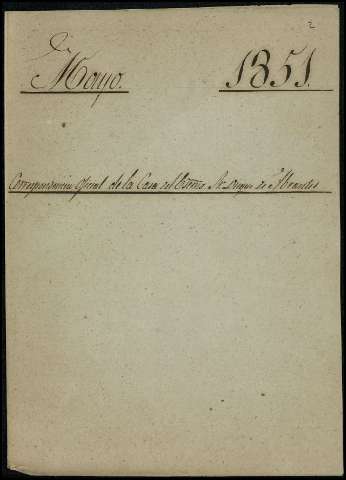 2
Mayo. 1851.
Correspondencia Oficial de la Casa del Exmo. Sr. Duque de Abrantes